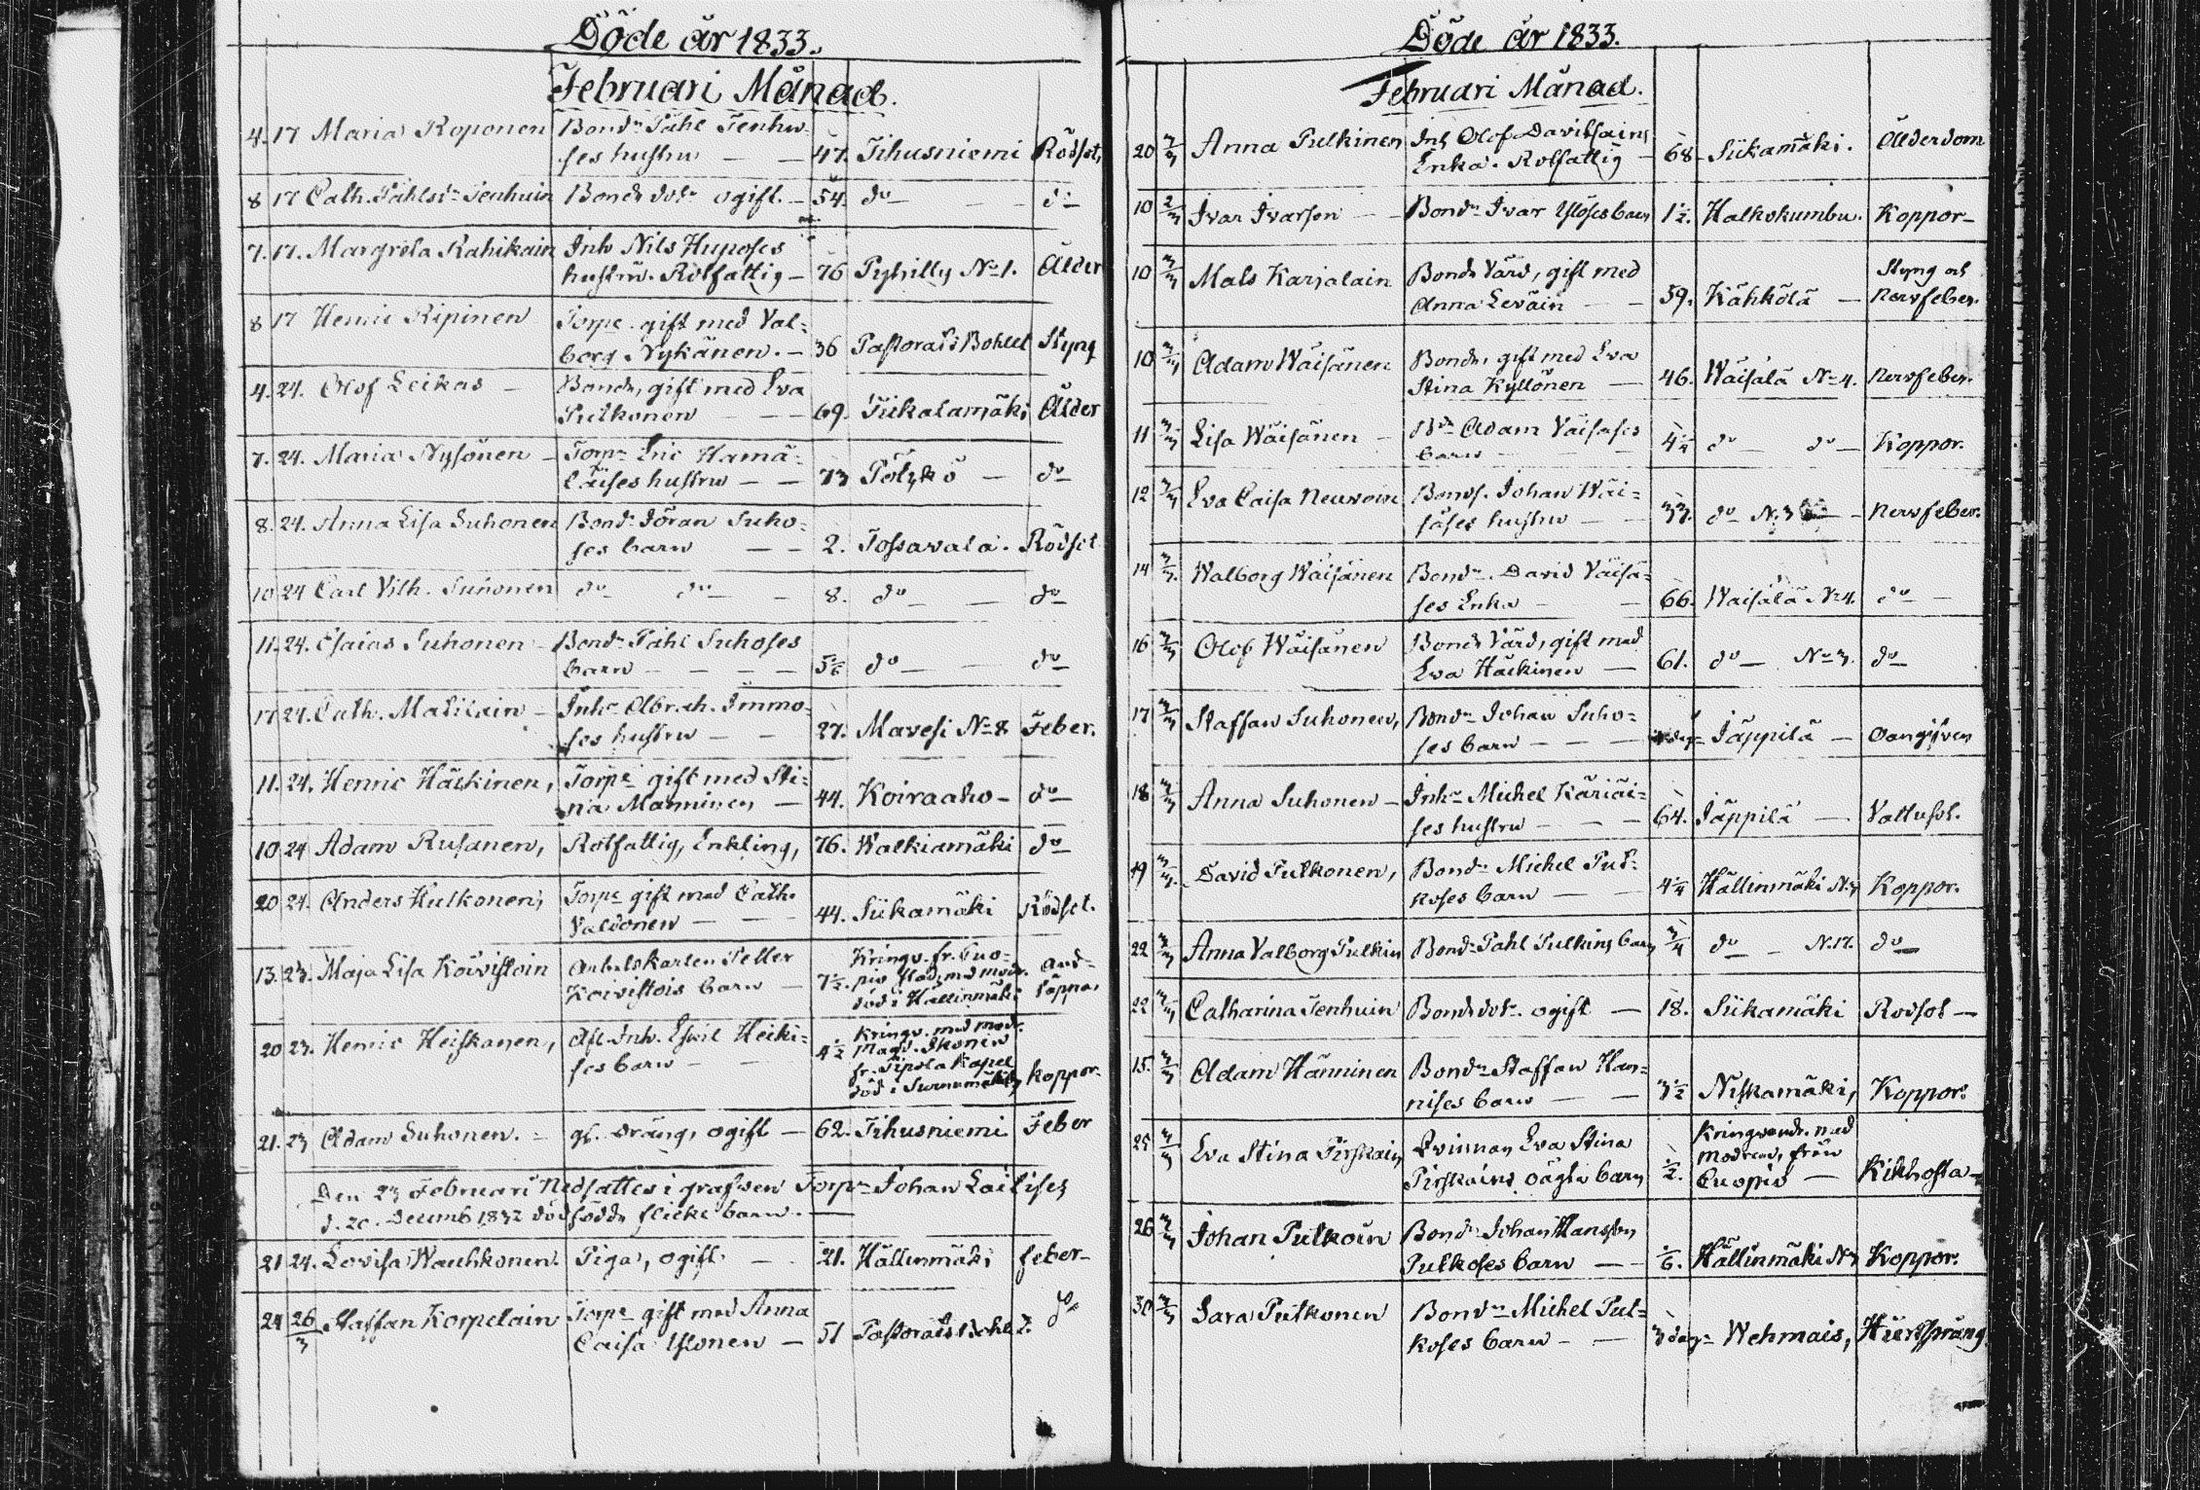 Döde år 1833.
Februari Månad.
4. 17 Maria Roponen Bondn Påhl Tenhu-
ses hustru — — 47. Tihusniemi Rödsot,
8 17 Cath. Påhlsdr Tenhuin Bonde dotr ogift. — 54. do — — do
7. 17. Margreta Rahikain Inh Nils Huposes
hustru. Rotfattig — 76 Pyhitty No 1. Ålder
8 17 Henric Ripinen Torpe. gift med Val-
borg Nykänen. — 36 Pastorats Bohlet Styng
4. 24. Olof Leikas — Bonde, gift med Eva
Pulkonen — — — 69. Tiikalamäki Ålder
7. 24. Maria Nysönen — Torpn Eric Hämä-
läises hustru — — 73 Pölykö — do
8. 24. Anna Lisa Suhonen Bondn Göran Suho-
ses barn — — 2. Tossavala. Rödsot
10 24 Carl Vilh. Suhonen do do — 8. do — do
11. 24. Esaias Suhonen — Bondn Påhl Suhoses
barn — — — — 5/6 do — — do
17 24. Cath. Matilain — Inhn Abrah. Immo-
ses hustru — — 27. Mavesi No 8 Feber.
11. 24. Henric Häckinen, Torpe gift med Sti-
na Manninen — 44. Koiraaho — do
10 24 Adam Rusanen, Rotfattig, Enkling, 76. Walkiamäki do
20 24. Anders Hulkonen, Torpe gift med Cath.
Valdonen — — — 44. Siikamäki Rödsot.
13. 23. Maja Lisa Koivistoin Arbetskarlen Petter
Koivistois barn — 7 1/2. Kringv. fr. Cuo-
pio stad, med modr.
död i Hällinmäki And-
täppa.
20 23. Henric Heiskanen, Afl. Inh. Eskil Heiki-
ses barn — — 4 1/2 Kringv. med modr.
Magd. Ikonen
fr. Pipola Kapel
död i Surnumäki, koppor.
21. 23 Adam Suhonen. — gl. dräng, ogift — 62. Tihusniemi Feber
Den 23 Februari nedsattes i grafven Torpn Johan Laitises
d. 20. Decemb 1832 dödfödde flicke barn. —
21 24. Lovisa Wauhkonen. Piga, ogift. — 21. Hällinmäki feber —
24 26/3 Staffan Korpelain Torpe gift med Anna
Caisa Ylönen — 51 Pastorats Bohlet. do
Döde år 1833.
Februari Månad.
20 3/3 Anna Pulkinen Inh Olof Davidsains
Enka. Rotfattig — 68 Siikamäki. Ålderdom
10 3/3 Ivar Ivarson — — Bondn Ivar Ylöses barn 1 1/2. Halkokumbu. Koppor —
10 3/3 Mats Karjalain Bonde Värd, gift med
Anna Leväin — — 59. Kähkölä — Styng och
nervfeber.
10 3/3 Adam Wäisänen Bonde, gift med Eva
Stina Kyllönen — 46. Wäisälä No 4. nervfeber.
11 3/3 Lisa Wäisänen — Bdn Adam Väisäses
barn — — 4 1/2 do — do — Koppor.
12 3/3 Eva Caisa Neuvoin Bonds. Johan Wäi-
säses hustru — — 33. do N. 3 — nervfeber.
14 3/3. Walborg Wäisänen Bondn. David Väisä-
ses Enka — — 66. Waisälä No 4. do —
16 3/3 Olof Wäisänen Bonde Värd, gift med
Eva Häckinen — 61. do — No 3. do —
17 3/3 Staffan Suhonen, Bondn Johan Suho-
ses barn — — — Jäppilä — Oangifven
18 3/3 Anna Suhonen — Inhn Michel Käriäi-
ses hustru — — — 64. Jäppilä — Vattusot.
19 3/3. David Pulkonen, Bondn Michel Pul-
koses barn — — 4 1/4 Hällinmäki N. 3 Koppor.
22 3/3 Anna Valborg Pulkin Bondn Pahl Pulkins barn 3/4 do — N. 17. do —
22 3/3 Catharina Tenhuin Bonde dotr. ogift — 18. Siikamäki Rodsot —
15. 3/3 Adam Hänninen Bondn Staffan Hän-
nises barn — — 3 1/2 Niskamäki, Koppor.
25 3/3 Eva Stina Pirskain Qvinnan Eva Stina
Pirskains oägta barn 1/2. Kringvandr. med
modren, från
Cuopio — Kikhosta —
26 3/3 Johan Pulkoin Bondn Johan Hansson
Pulkoses barn — — 1/6. Hällinmäki N 3 Koppor.
30 3/3 Sara Pulkonen Bondn Michel Pul-
koses barn — — 3 dagr Wehmais, Hiertsprång.